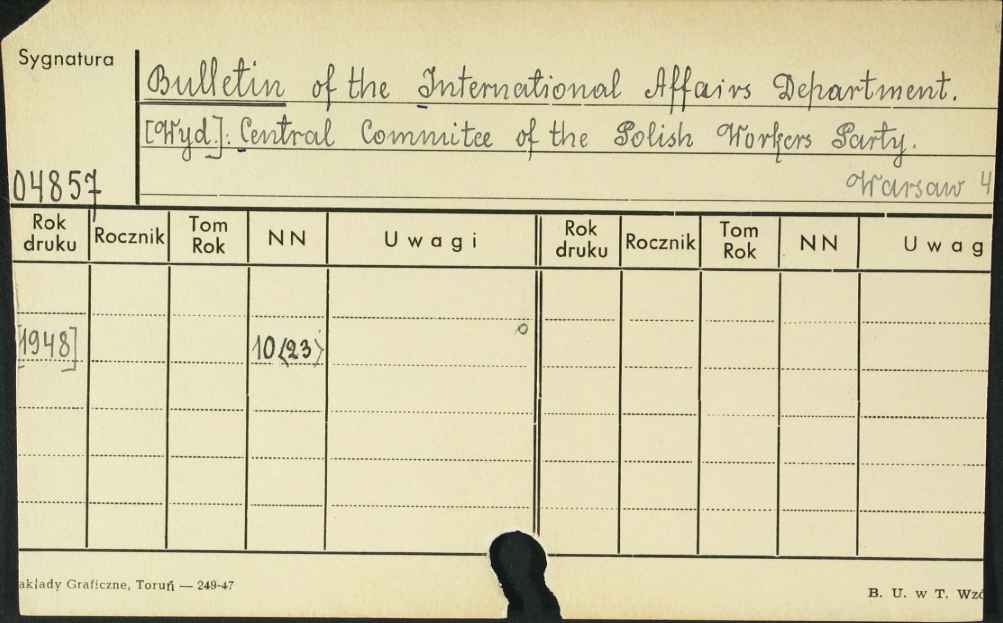 Sygnatura
Bulletin of the International Affairs Department.
[Wyd.]: Central Commitee of the Polish Workers Party.
04857
Warsaw 4
Rok druku Rocznik Tom Rok NN Uwagi Rok druku Rocznik Tom Rok NN Uwag
[1948] 10(23)
akłady Graficzne, Toruń — 249-47
B. U. w T. Wzó